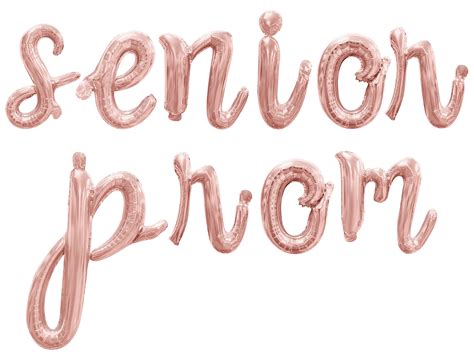 senior
prom